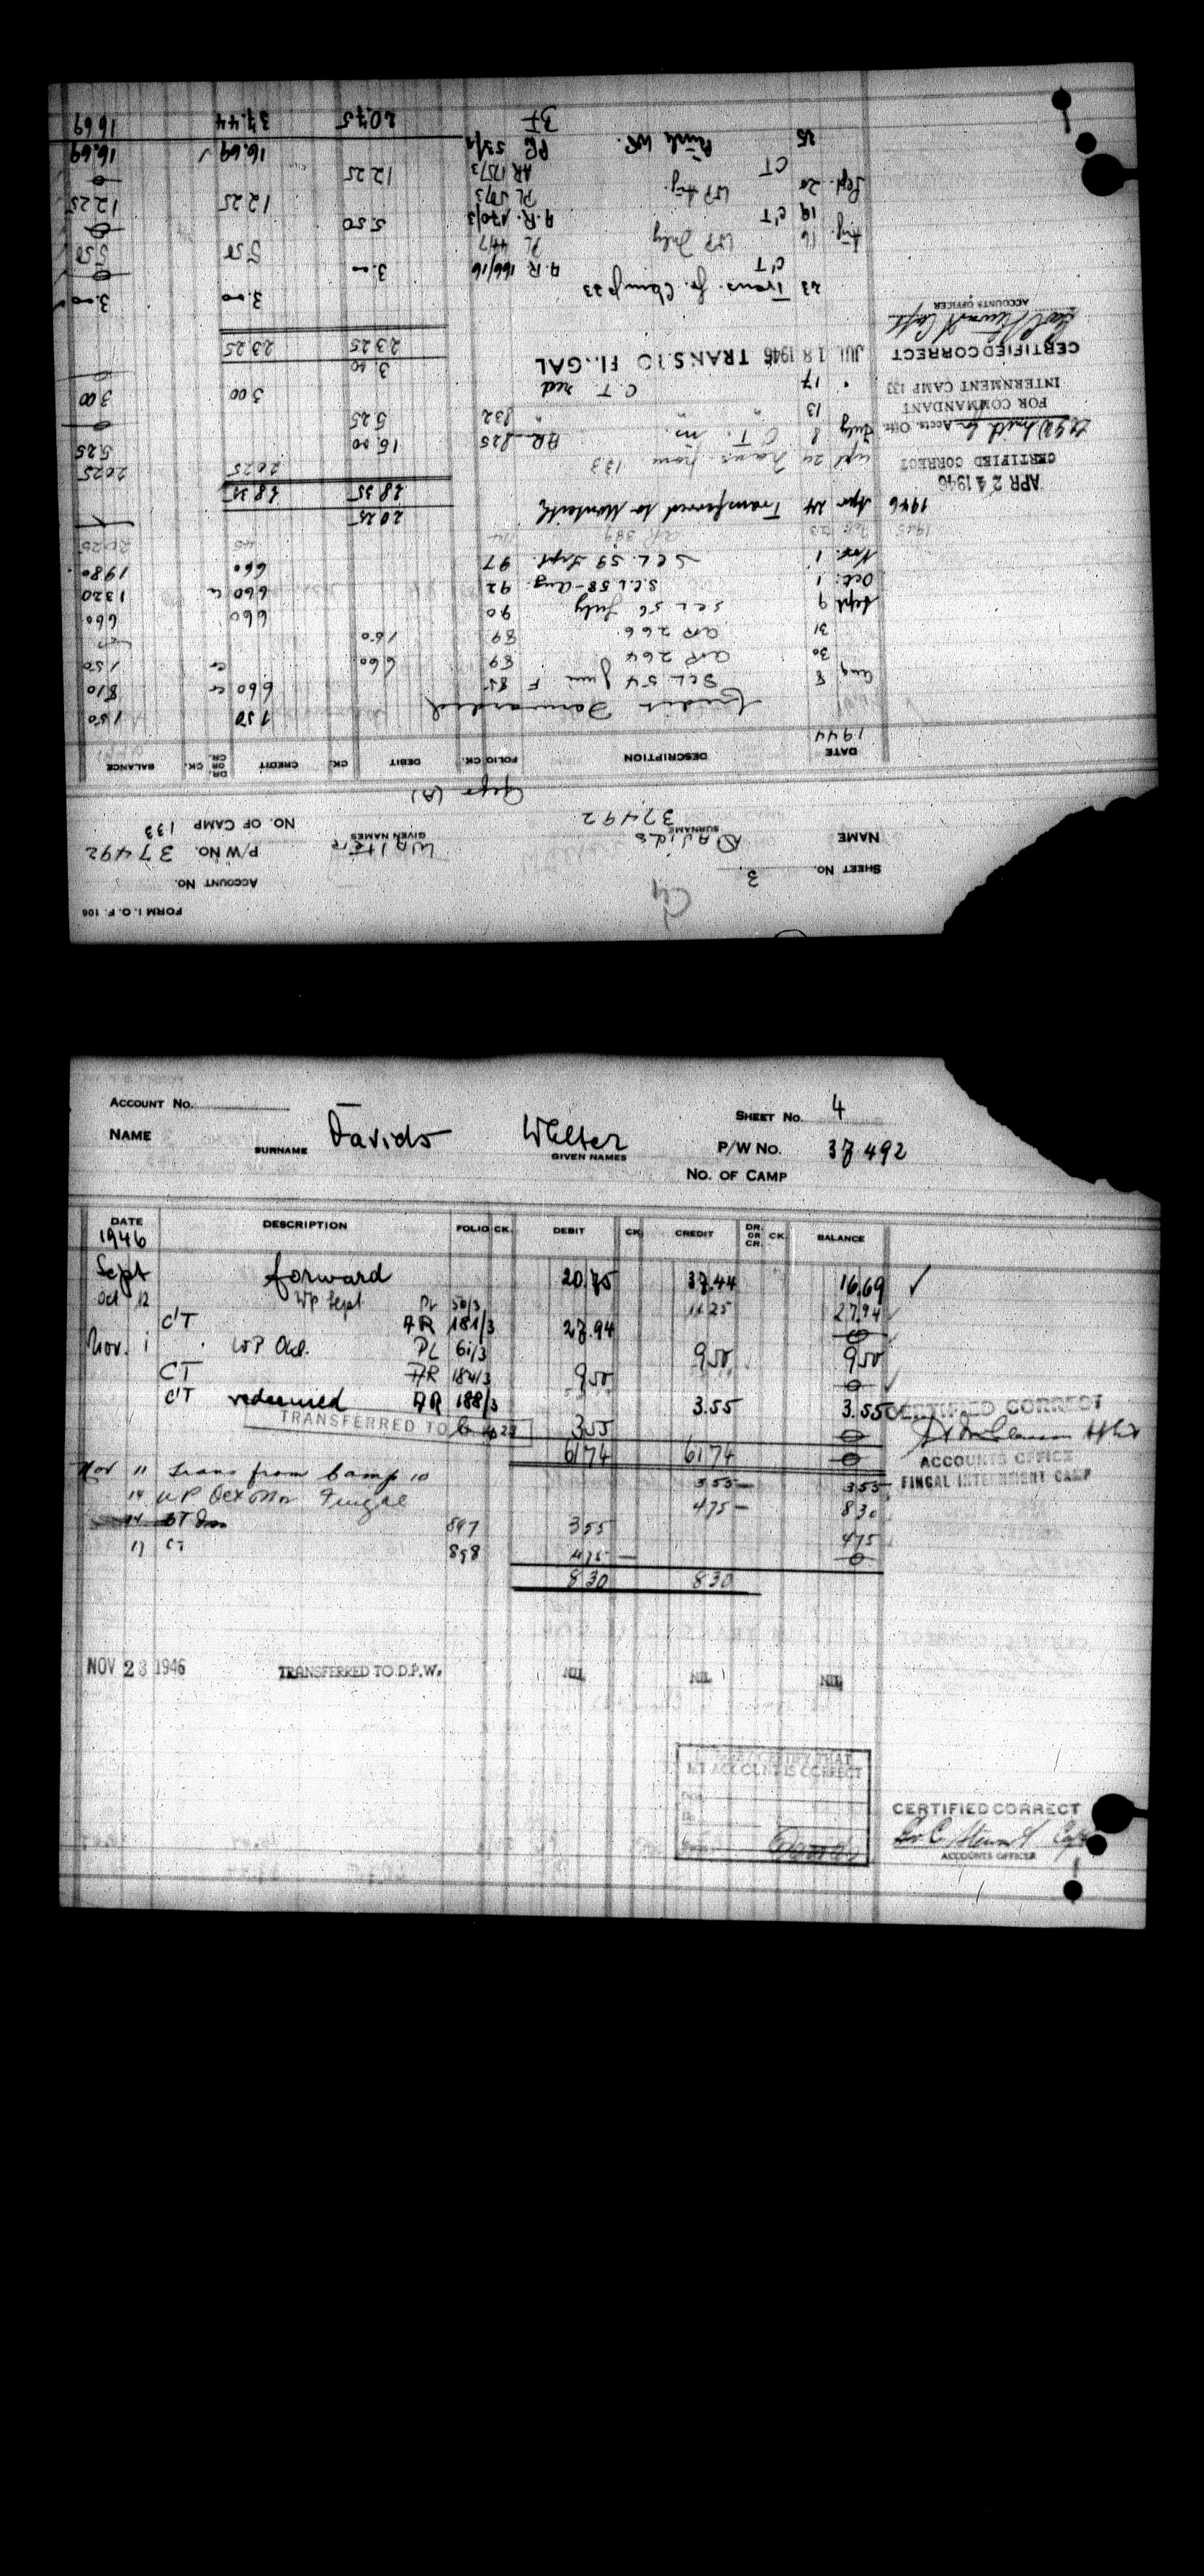 FORM I. O. F. 106
SHEET No. 3
ACCOUNT No.
NAME Davids Walter P/W No. 37492
SURNAME GIVEN NAMES
37492 NO. OF CAMP 133
DATE DESCRIPTION FOLIO CK. DEBIT CK. CREDIT DR. OR CR. CK. BALANCE
1944
Credit Forwarded 1 50 1 50
Aug 8 SCL 54 June F 85 6 60 cr 8 10
30 AR 264 89 6 60 cr 1 50
31 AR 266 89 1 50
Sept 9 SCL 56 July 90 6 60 6 60
Oct. 1 SCL 58 - Aug. 92 6 60 cr 13 20
Nov. 1 SCL 59 Sept. 97 6 60 19 80
1945 23 AR 389 114 45 20 25
1946 Apr 24 Transferred to Monteith 20 25
28 35 28 35
APR 24 1946
CERTIFIED CORRECT
Accts. Offr.
FOR COMMANDANT
INTERNMENT CAMP 133
Apl 24 Trans from 133 20 25 20 25
July 8 C. T. m. AR 825 15 00 5 25
13 " " " 832 5 25 0
" 17 C. T. red 3 00 3 00
JUL 18 1946 TRANS. TO FINGAL 3.00
23 25 23 25
CERTIFIED CORRECT
ACCOUNTS OFFICER
23 Trans. fr. Camp 23 3.00 3.00
C'T A.R. 166/16 3.00 0
Aug. 16 WP July PL 447 5 50 5 50
19 C'T A.R. 170/3 5.50 0
Sept. 20 WP Aug. PL 50/3 12 25 12 25
CT AR 175/3 12 25 0
25 WP. 53/3 16.69 16.69
BF 20.75 37.44 16 69
ACCOUNT NO. SHEET NO. 4
NAME Davids Walter P/W NO. 37492
SURNAME GIVEN NAMES
NO. OF CAMP
DATE DESCRIPTION FOLIO CK. DEBIT CK. CREDIT DR. OR CR. CK. BALANCE
1946
Sept forward 20.75 37.44 16.69
Oct 12 WP Sept. PL 50/3 11 25 27.94
C'T AR 181/3 27.94 0
Nov. 1 WP Oct. PL 61/3 9 50 9 50
CT AR 184/3 9 50 0
C'T redeemed AR 188/3 3.55 3.55
TRANSFERRED TO 3 55 0
61 74 61 74 0
CERTIFIED CORRECT
ACCOUNTS OFFICE
FINGAL INTERNMENT CAMP
Nov 11 Trans from Camp 10 3 55 3 55
14 WP Oct Nov Fingal 4 75 8 30
14 CT 897 3 55 4 75
17 CT 898 4 75 0
8 30 8 30
NOV 23 1946 TRANSFERRED TO D.P.W. NIL NIL NIL
CERTIFY THAT
MY ACCOUNT IS CORRECT
CERTIFIED CORRECT
ACCOUNTS OFFICER